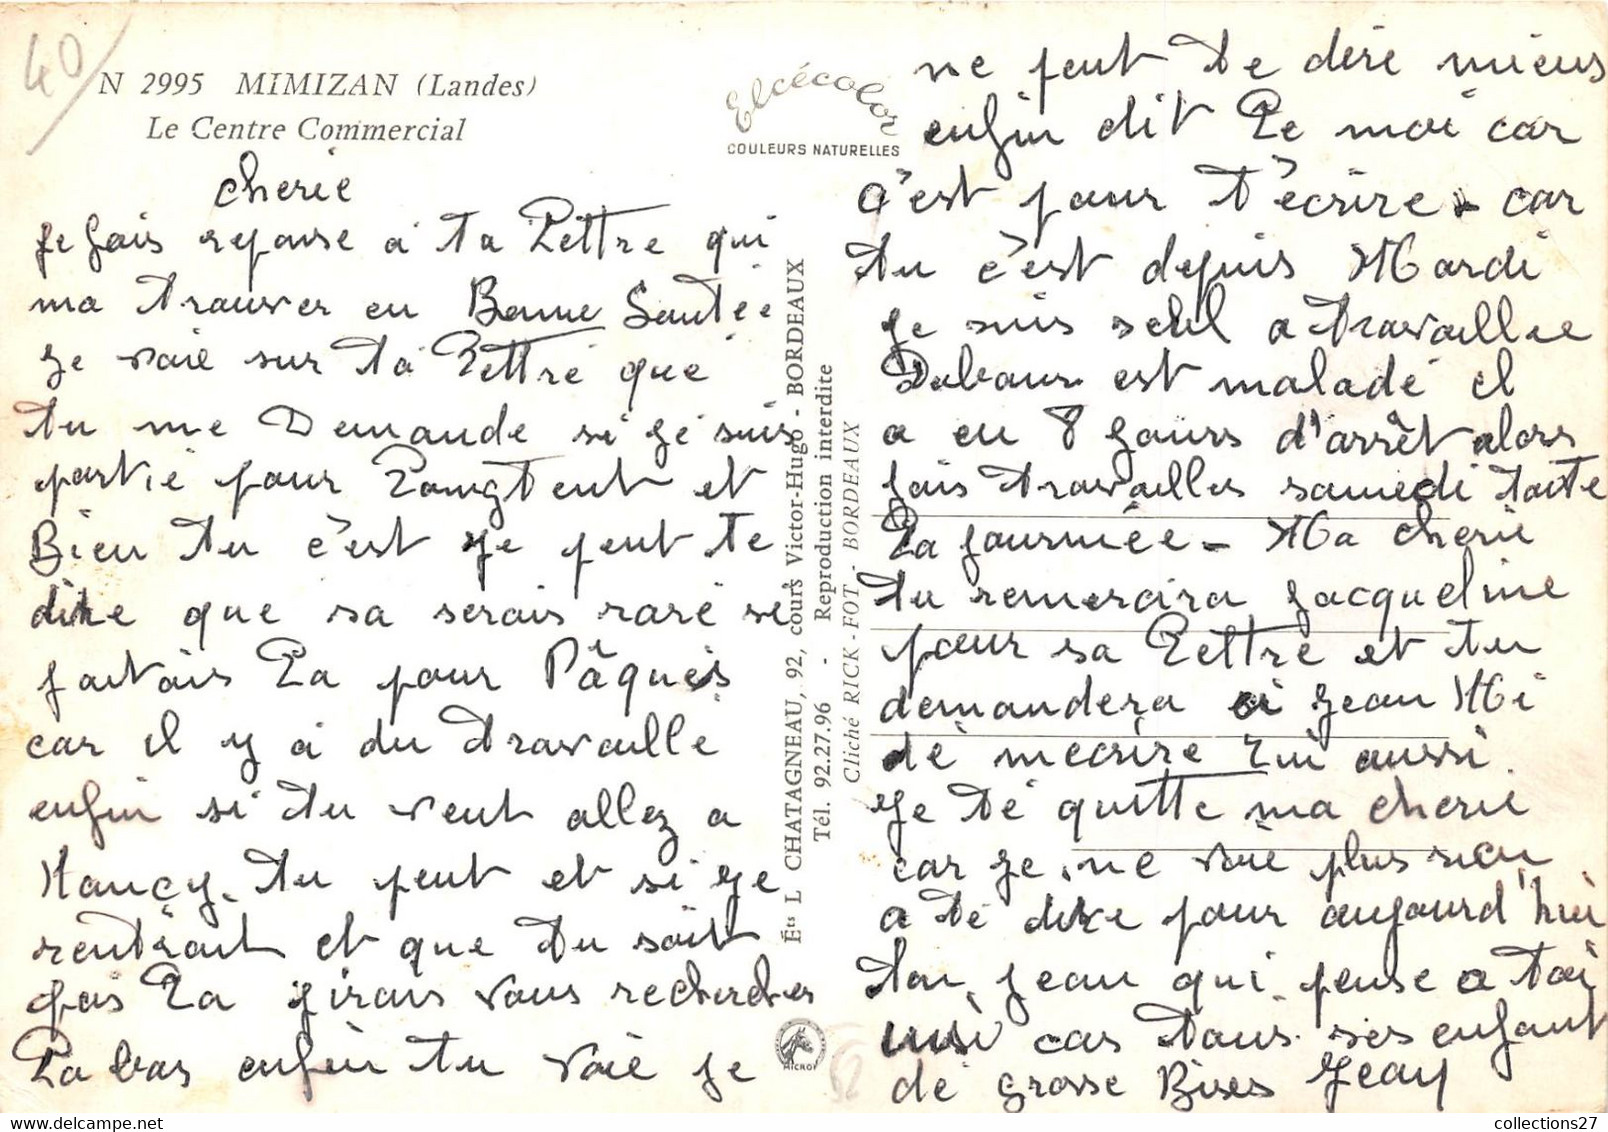 40
N 2995 MIMIZAN (Landes)
Le Centre Commercial
Elcécolor
COULEURS NATURELLES
cherie
je fais reponse a ta lettre qui
ma trouver en Bonne Santée
je voie sur ta lettre que
tu me Demande si je suis
partie pour longtent et
Bien tu c'est je peut te
dire que sa serais rare se
jaitais la pour Pâques
car il y a du travaille
enfin si tu veut allez a
Nancy. tu peut et si je
rentrait et que tu soit
pas la jirais vous rechercher
la bas enfin tu voie je
ne peut te dire mieus
enfin dit le moi car
c'est pour t'écrire - car
tu c'est depuis Mardi
je suis seul a travaillee
est malade il
a eu 8 jours d'arrêt alors
fais travailles samedi toute
la journée - Ma cherie
tu remercira jacqueline
pour sa lettre et tu
demandera si jean Mi
de mecrire lui aussi
je te quitte ma cherie
car je ne voie plus rien
a te dire pour aujourd'hui
ton jean qui pense a toi
insi cas tous ses enfant
de grosse Bises jean
Éts L CHATAGNEAU, 92, cours Victor-Hugo - BORDEAUX
Tél. 92.27.96 - Reproduction interdite
Cliché RICK - FOT - BORDEAUX
52
collections27